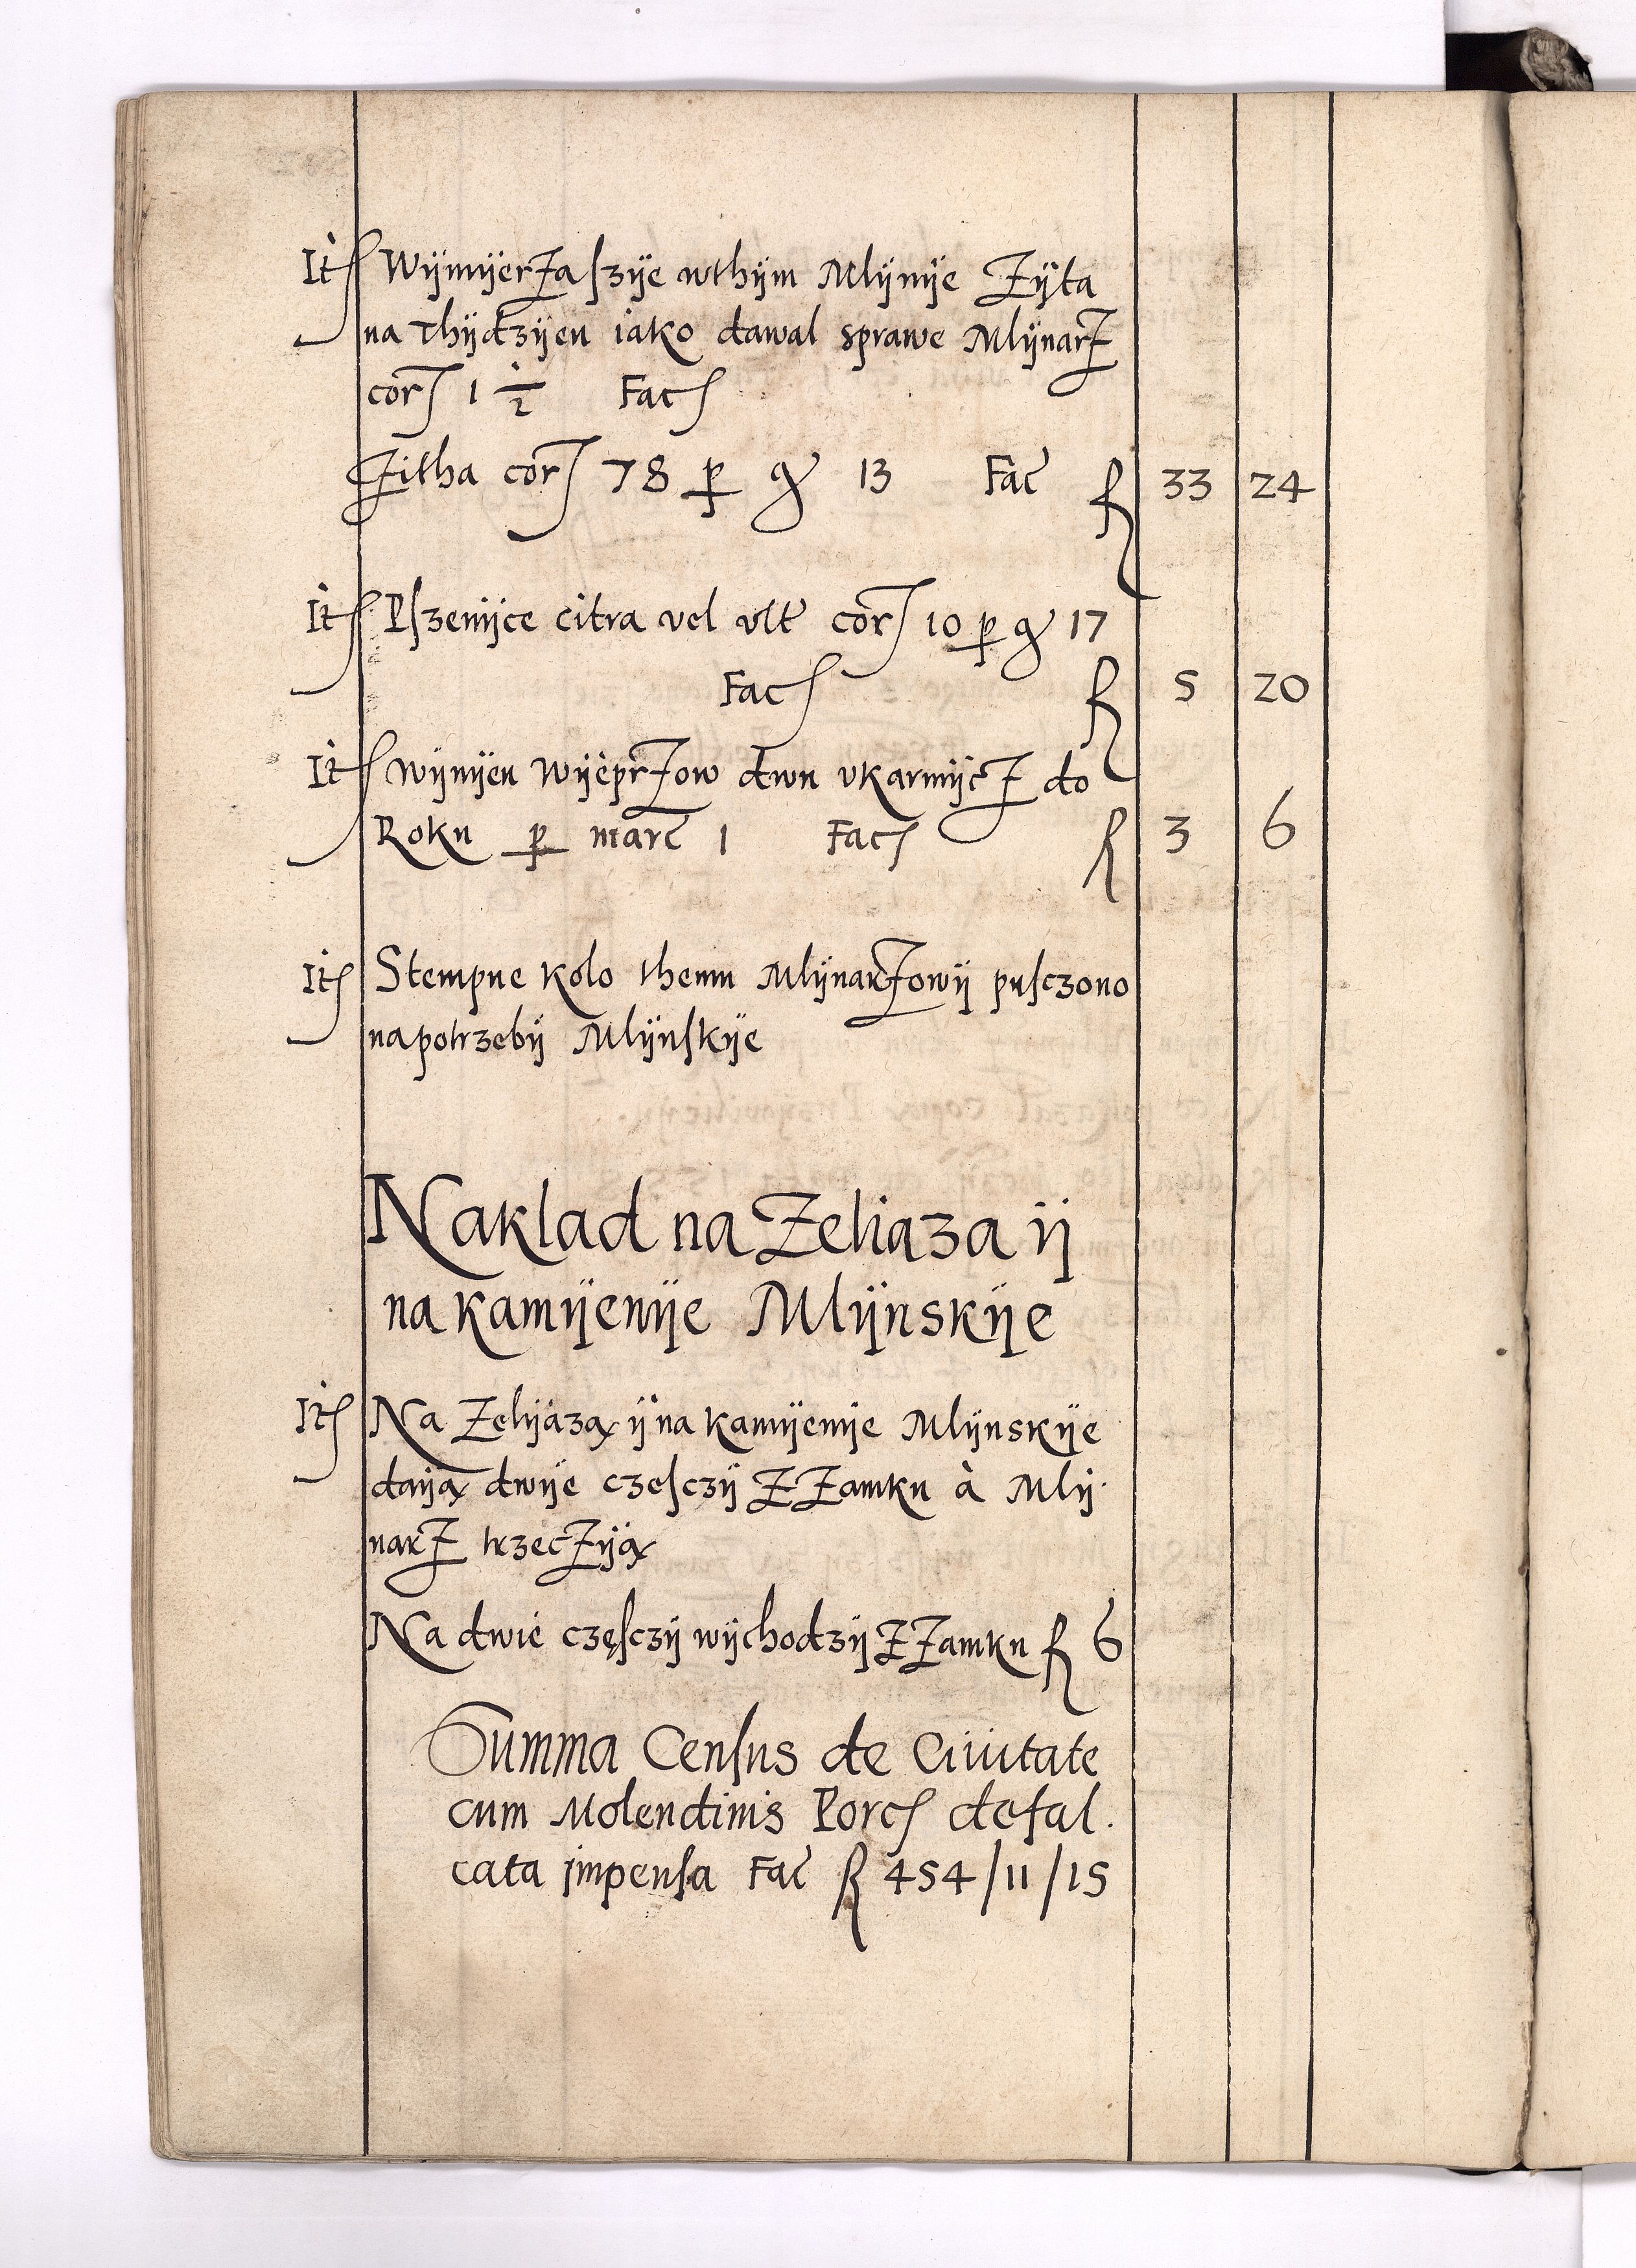 It Wÿmÿerża szÿe wthÿm Mlÿnÿe Żÿta
na Thÿdzÿen iako dawal sprawe Mlÿnarż
cor 1 1/2 Fac
Żitha cor 78 p gr 13 Fac fl 33 24
It Pszenÿce citra vel vlt cor 10 p gr 17
Fac fl 5 20
It Wÿnÿen Wÿeprżow dwu vkarmÿcż do
Roku p marc 1 Fac fl 3 6
It Stempne kolo themu Mlÿnarżowÿ pusczono
na potrzebÿ Mlÿnskÿe
Naklad na Zeliaza ÿ
na kamÿenÿe Mlÿnskÿe
It Na Zelÿaza ÿ na kamÿenÿe Mlÿnskÿe
daÿą dwÿe częsczÿ Z Zamku à Mlÿ
narż trzecżÿą
Na dwie częsczÿ wÿchodzÿ Z Zamku fl 6
Summa Census de Ciuitate
cum Molendinis Porc defal
cata impensa Fac fl 454/11/15